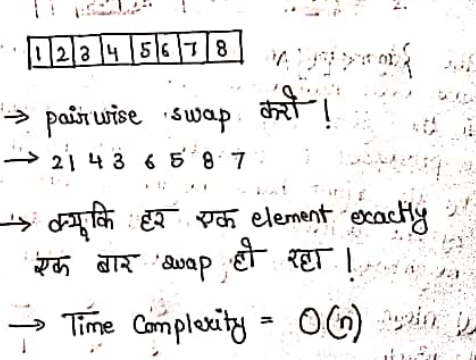 1 2 3 4 5 6 7 8
→ pairwise swap करो !
→ 2 1 4 3 6 5 8 7
→ क्यूकि हर एक element exactly
एक बार swap हो रहा !
→ Time Complexity = O(n)